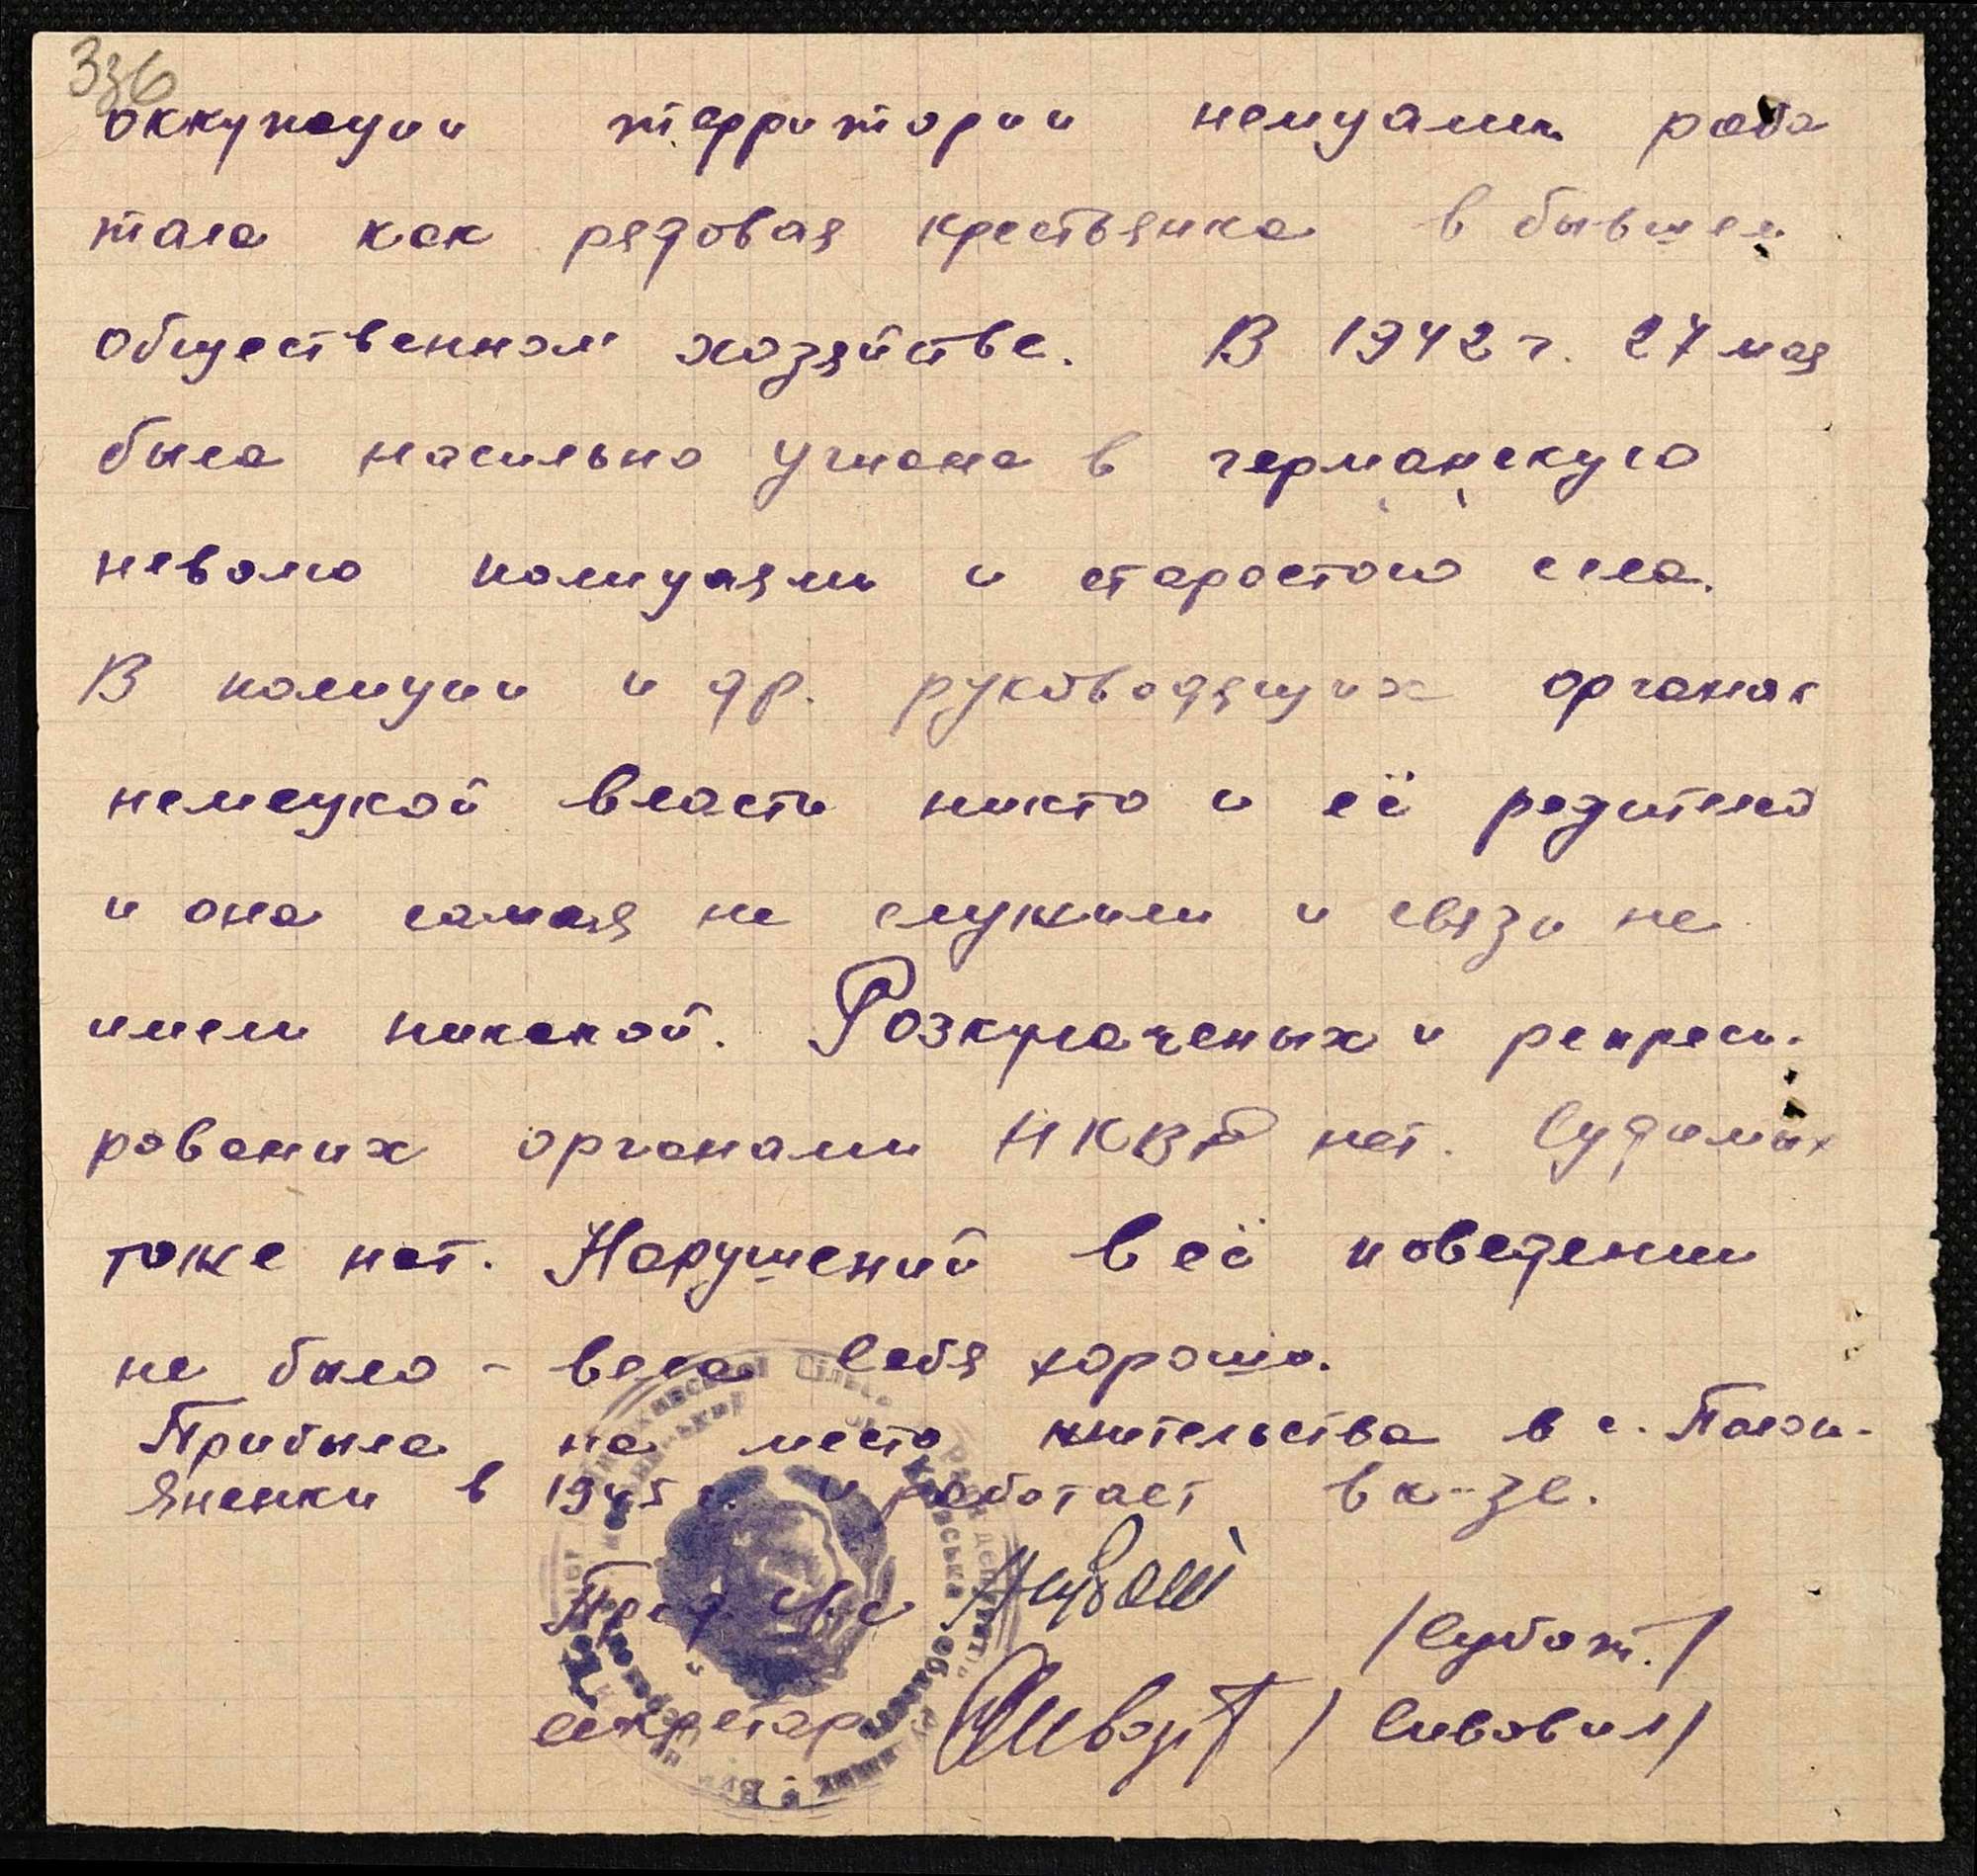 336
оккупации территории немцами рабо
тала как рядовая крестьянка в бывшем
общественном хозяйстве. В 1942 г. 27 мая
была насильно угнана в германскую
неволю полицаями и старостою села.
В полиции и др. руководящих органах
немецкой власти никто и её родителей
и она самая не служили и связи не
имели никакой. Розкулаченых и репреси-
рованих органами НКВД нет. Судимых
тоже нет. Нарушений в её поведении
не было - вела себя хорошо.
Прибыла на место жительства в с.
в 1945 г. и работает в к-зе.
Пред. с/с /Субот./
секретар /Сивовил/